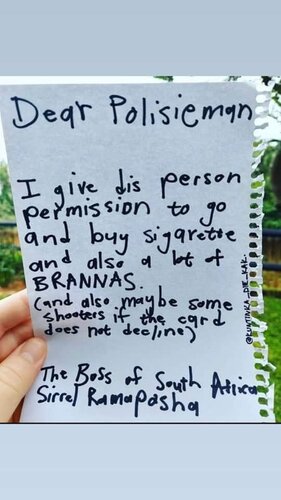 Dear Polisieman
I give dis person
permission to go
and buy sigarette
and also a lot of
BRANNAS.
(and also maybe some
shooters if the card
does not decline)
The Boss of South Africa
Sirrel Ramaposha